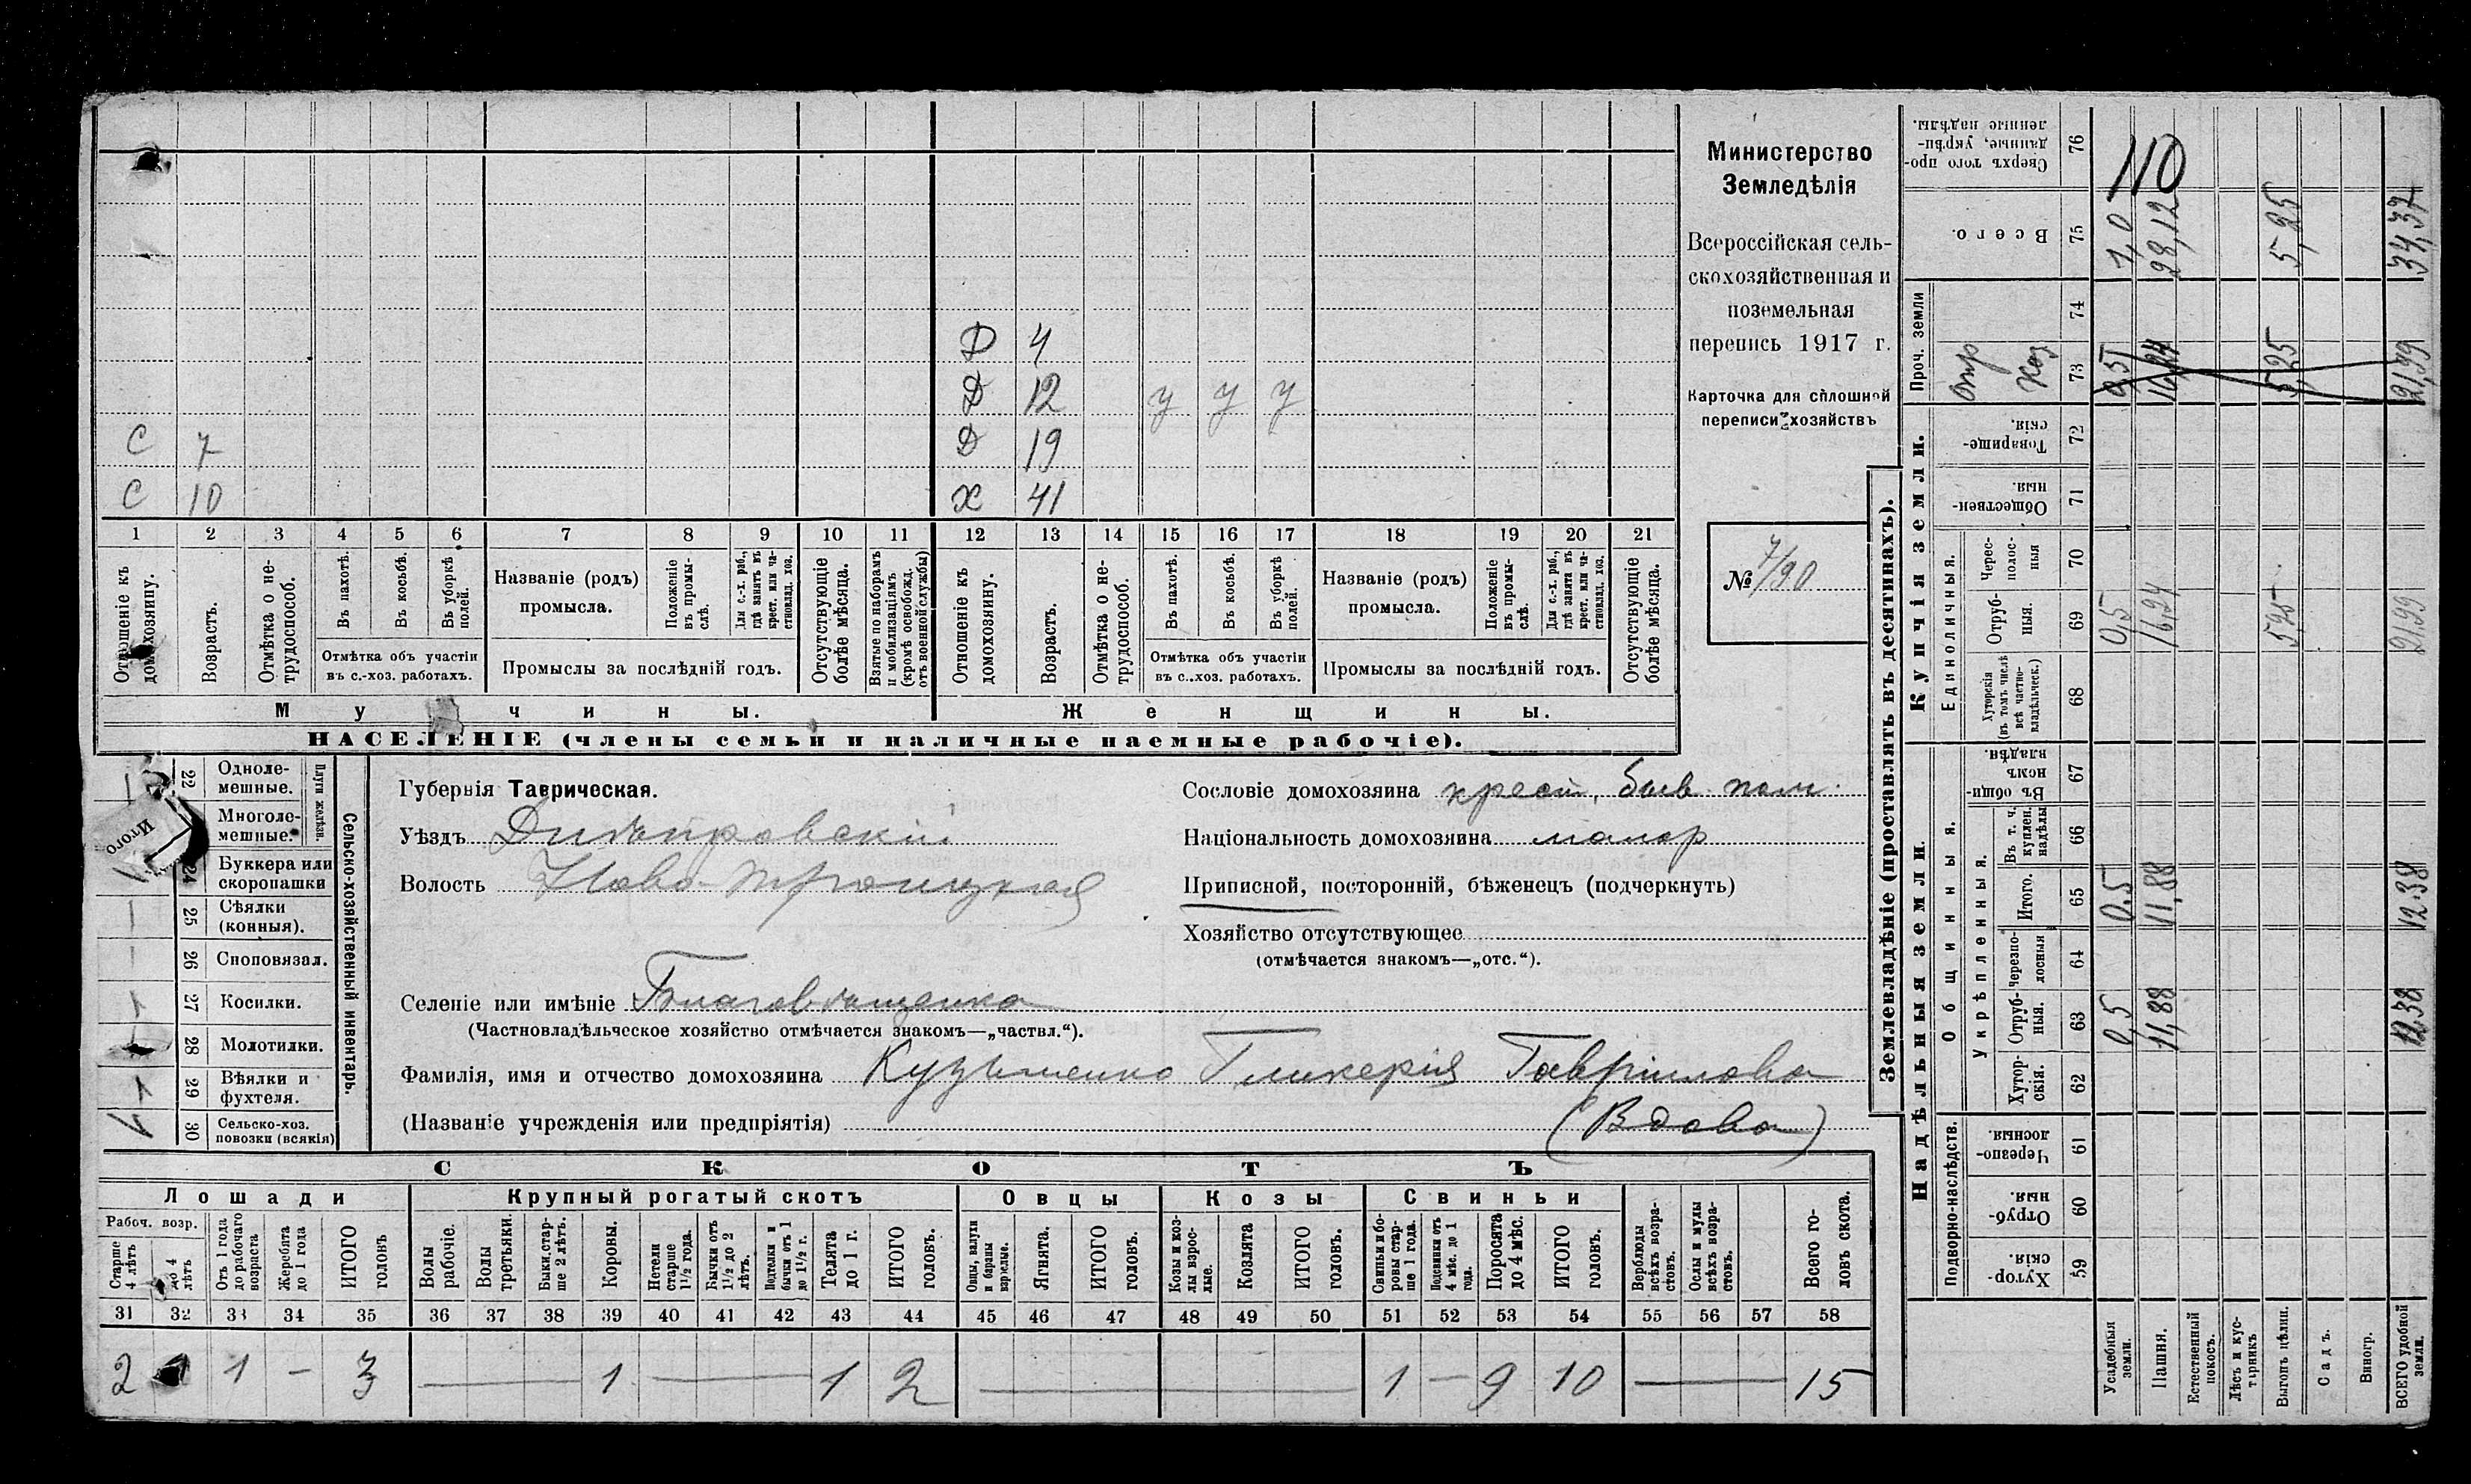 Министерство
Земледѣлія
Всероссійская сель-
скохозяйственная и
поземельная
перепись 1917 г.
Карточка для сплошной
переписи хозяйствъ
№ 7/90
Д 4
Д 12 у у у
С 7 Д 19
С 10 Х 41
1 2 3 4 5 6 7 8 9 10 11 12 13 14 15 16 17 18 19 20 21
Отношеніе къ домохозяину.
Возрастъ.
Отмѣтка о не-трудоспособ.
Въ пахотѣ.
Въ косьбѣ.
Въ уборкѣ полей.
Отмѣтка объ участіи
въ с.-хоз. работахъ.
Названіе (родъ)
промысла.
Положеніе въ промы-слѣ.
Для с.-х. раб., гдѣ занятъ въ крест. или ча-стновлад. хоз.
Промыслы за послѣдній годъ.
Отсутствующіе болѣе мѣсяца.
Взятые по наборамъ и мобилизаціямъ (кромѣ освобожд. отъ военной службы)
Отношеніе къ домохозяину.
Возрастъ.
Отмѣтка о не-трудоспособ.
Въ пахотѣ.
Въ косьбѣ.
Въ уборкѣ полей.
Отмѣтка объ участіи
въ с.-хоз. работахъ.
Названіе (родъ)
промысла.
Положеніе въ промы-слѣ.
Для с.-х. раб., гдѣ занята въ крест. или ча-стновлад. хоз.
Промыслы за послѣдній годъ.
Отсутствующіе болѣе мѣсяца.
Му чины. Женщины.
НАСЕЛЕНІЕ (члены семьи и наличные наемные рабочіе).
Сельско-хозяйственный инвентарь.
Плуги желѣзн.
22 Одноле-мешные.
Многоле-мешные.
24 Буккера или скоропашки
25 Сѣялки (конныя).
26 Сноповязал.
27 Косилки. 1
28 Молотилки.
29 Вѣялки и фухтеля. 1
30 Сельско-хоз. повозки (всякія)
Итого
Губернія Таврическая.
Уѣздъ Днѣпровскій
Волость Ново-Троицкая
Селеніе или имѣніе Благовѣщенка
(Частновладѣльческое хозяйство отмѣчается знакомъ—„частвл.“).
Фамилія, имя и отчество домохозяина Кузьменко Гликерія Гаврилова
(Названіе учрежденія или предпріятія) (Вдова)
Сословіе домохозяина крест. быв. пом.
Національность домохозяина малор
Приписной, посторонній, бѣженецъ (подчеркнуть)
Хозяйство отсутствующее
(отмѣчается знакомъ—„отс.“).
СКОТЪ
Лошади Крупный рогатый скотъ Овцы Козы Свиньи
Рабоч. возр.
Старше 4 лѣтъ
до 4 лѣтъ
Отъ 1 года до рабочаго возраста
Жеребята до 1 года
ИТОГО головъ
Волы рабочіе.
Волы третьяки.
Быки стар-ше 2 лѣтъ.
Коровы.
Нетели старше 1½ года.
Бычки отъ 1½ до 2 лѣтъ.
Подтелки и бычки отъ 1 до 1½ г.
Телята до 1 г.
ИТОГО головъ.
Овцы, валухи и бараны взрослые.
Ягнята.
ИТОГО головъ.
Козы и коз-лы взрос-лые.
Козлята
ИТОГО головъ.
Свиньи и бо-ровы стар-ше 1 года.
Подсвинки отъ 4 мѣс. до 1 года.
Поросята до 4 мѣс.
ИТОГО головъ.
Верблюды всѣхъ возра-стовъ.
Ослы и мулы всѣхъ возра-стовъ.
Всего го-ловъ скота.
31 32 33 34 35 36 37 38 39 40 41 42 43 44 45 46 47 48 49 50 51 52 53 54 55 56 57 58
2 1 – 3 — 1 — 1 2 — 1 – 9 10 — 15
Землевладѣніе (проставлять въ десятинахъ).
Купчія земли.
Надѣльныя земли.
Проч. земли
Единоличныя.
Общинныя.
Укрѣпленныя.
Подворно-наслѣдств.
76 Сверхъ того про-данные, укрѣп-ленные надѣлы.
110
75 Всего. 1,0 28,12 5,25 34,37
74
73 16,24 5,25 21,99
72 Товарище-скія.
71 Обществен-ныя.
70 Черес-полос-ныя
69 Отруб-ныя. 0,5 16,24 5,25 21,99
68 Хуторскія (въ томъ числѣ всѣ частно-владѣльческ.)
67 Въ общин-номъ владѣн.
66 Въ т. ч. куплен. надѣлы
65 Итого. 0.5 11,88 12.38
64 Черезпо-лосныя
63 Отруб-ныя. 0,5 11,88 12,38
62 Хутор-скія.
61 Черезпо-лосныя.
60 Отруб-ныя.
59 Хутор-скія.
Усадебныя земли.
Пашня.
Естественный покосъ.
Лѣсъ и кус-тарникъ
Выгонъ цѣлин.
Садъ.
Виногр.
ВСЕГО удобной земли.